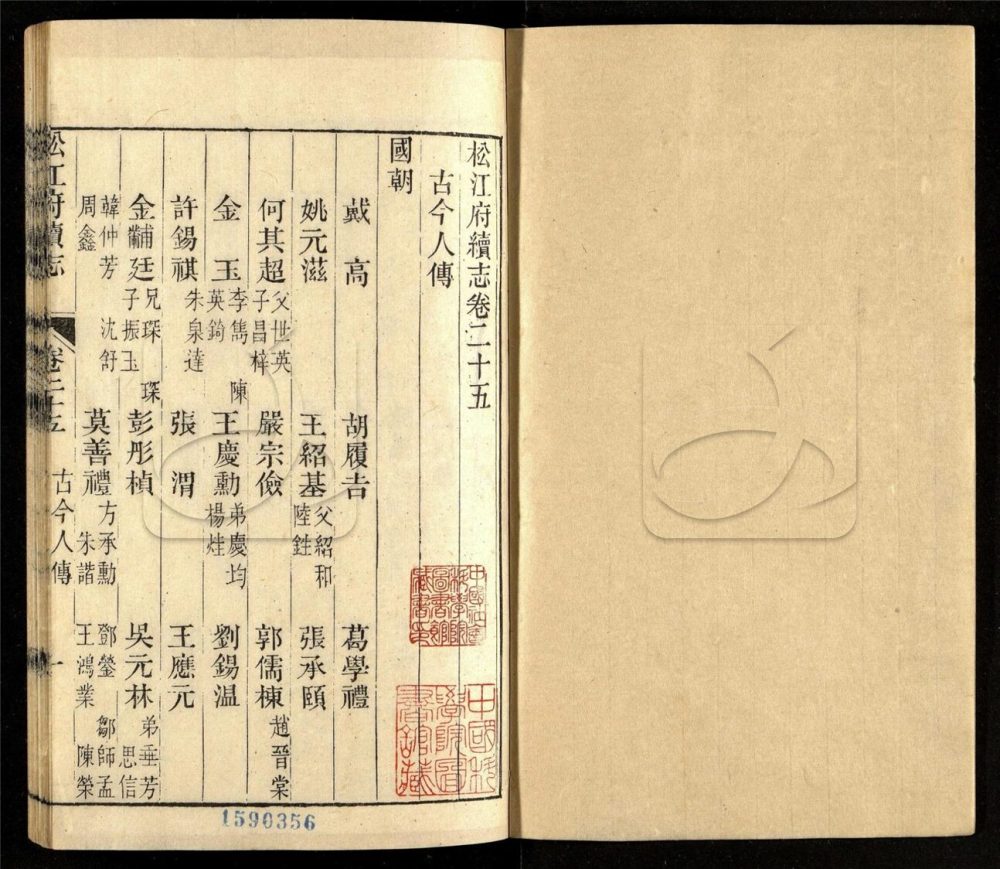 松江府續志卷二十五
古今人傳
國朝
戴高 胡履吉 葛學禮
姚元滋 王紹基 父紹和 陸鉎 張承頤
何其超 父世英 子昌梓 嚴宗儉 郭儒棟 趙晉棠
金玉 李雋 陳英錡 王慶勳 弟慶均 楊烓 劉錫温
許錫祺 朱泉達 張渭 王應元
金黼廷 兄琛 子振玉 琛 彭彤楨 吳元林 弟垂芳 思信
韓仲芳 沈舒 周鑫 莫善禮 方承勳 朱諧 鄧鎣 鄒師孟 王鴻業 陳榮
松江府續志 卷二十五 古今人傳 一
1590356